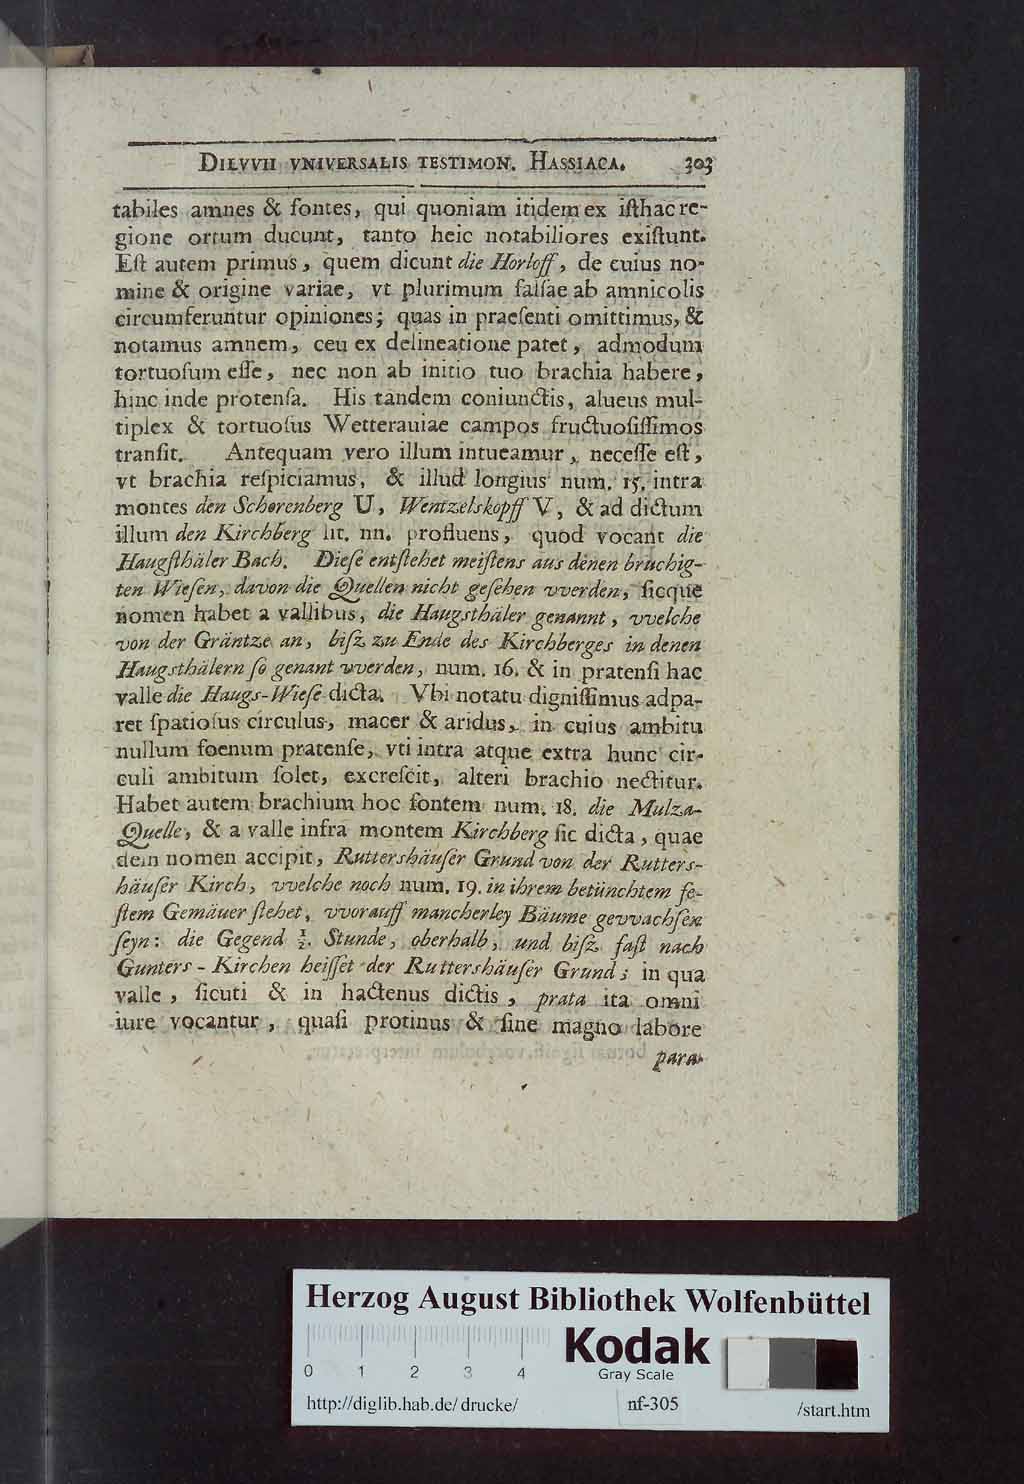 DILVVII VNIVERSALIS TESTIMON. HASSIACA. 303
tabiles amnes & fontes, qui quoniam itidem ex iſthac re-
gione ortum ducunt, tanto heic notabiliores exiſtunt.
Eſt autem primus, quem dicunt die Horloff, de cuius no-
mine & origine variae, vt plurimum falſae ab amnicolis
circumferuntur opiniones; quas in praeſenti omittimus, &
notamus amnem, ceu ex delineatione patet, admodum
tortuoſum eſſe, nec non ab initio tuo brachia habere,
hinc inde protenſa. His tandem coniunctis, alueus mul-
tiplex & tortuoſus Wetterauiae campos fructuoſiſſimos
tranſit. Antequam vero illum intueamur, neceſſe eſt,
vt brachia reſpiciamus, & illud longius num. 15. intra
montes den Schorenberg U, Wentzelskopff V, & ad dictum
illum den Kirchberg lit. nn. profluens, quod vocant die
Haugſthäler Bach. Dieſe entſtehet meiſtens aus denen bruchig-
ten Wieſen, davon die Quellen nicht geſehen vverden, ſicque
nomen habet a vallibus, die Haugsthäler genannt, vvelche
von der Gräntze an, biſz zu Ende des Kirchberges in denen
Haugsthälern ſo genant vverden, num. 16. & in pratenſi hac
valle die Haugs-Wieſe dicta. Vbi notatu digniſſimus adpa-
ret ſpatioſus circulus, macer & aridus, in cuius ambitu
nullum foenum pratenſe, vti intra atque extra hunc cir-
culi ambitum ſolet, excreſcit, alteri brachio nectitur.
Habet autem brachium hoc fontem num. 18. die Mulza-
Quelle, & a valle infra montem Kirchberg ſic dicta, quae
dein nomen accipit, Ruttershäuſer Grund von der Rutters-
häuſer Kirch, vvelche noch num. 19. in ihrem betünchtem fe-
ſtem Gemäuer ſtehet, vvorauff mancherley Bäume gevvachſen
ſeyn: die Gegend ½. Stunde, oberhalb, und biſz faſt nach
Gunters-Kirchen heiſſet der Ruttershäuſer Grund; in qua
valle, ſicuti & in hactenus dictis, prata ita omni
iure vocantur, quaſi protinus & ſine magno labore
para-
Herzog August Bibliothek Wolfenbüttel
Kodak
0 1 2 3 4 Gray Scale
http://diglib.hab.de/drucke/ nf-305 /start.htm